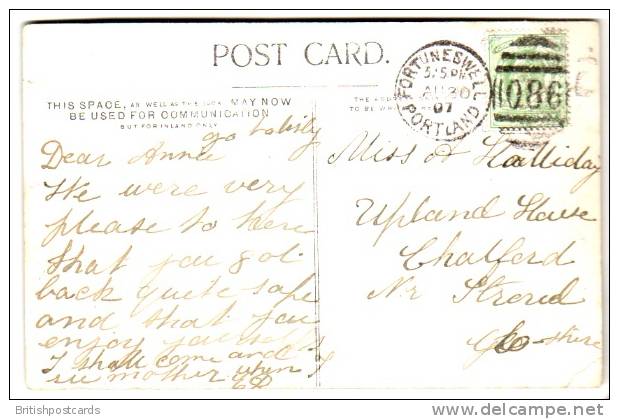 POST CARD.
THIS SPACE, AS WELL AS THE BACK, MAY NOW
BE USED FOR COMMUNICATION
BUT FOR INLAND ONLY.
THE ADDRESS
TO BE
FORTUNESWELL
5.5 PM
AU 30
07
PORTLAND
086
go
Dear Annie
We were very
please to here
that you got
back quite safe
and that you
enjoy yourself
I shall come and
see mother when
Miss A Halliday
Upland House
Chalford
Nr Stroud
Glo-shire
Britishpostcards
delcampe.net